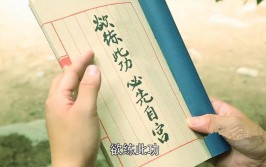 欲练此功
必先自宫
欲练此功